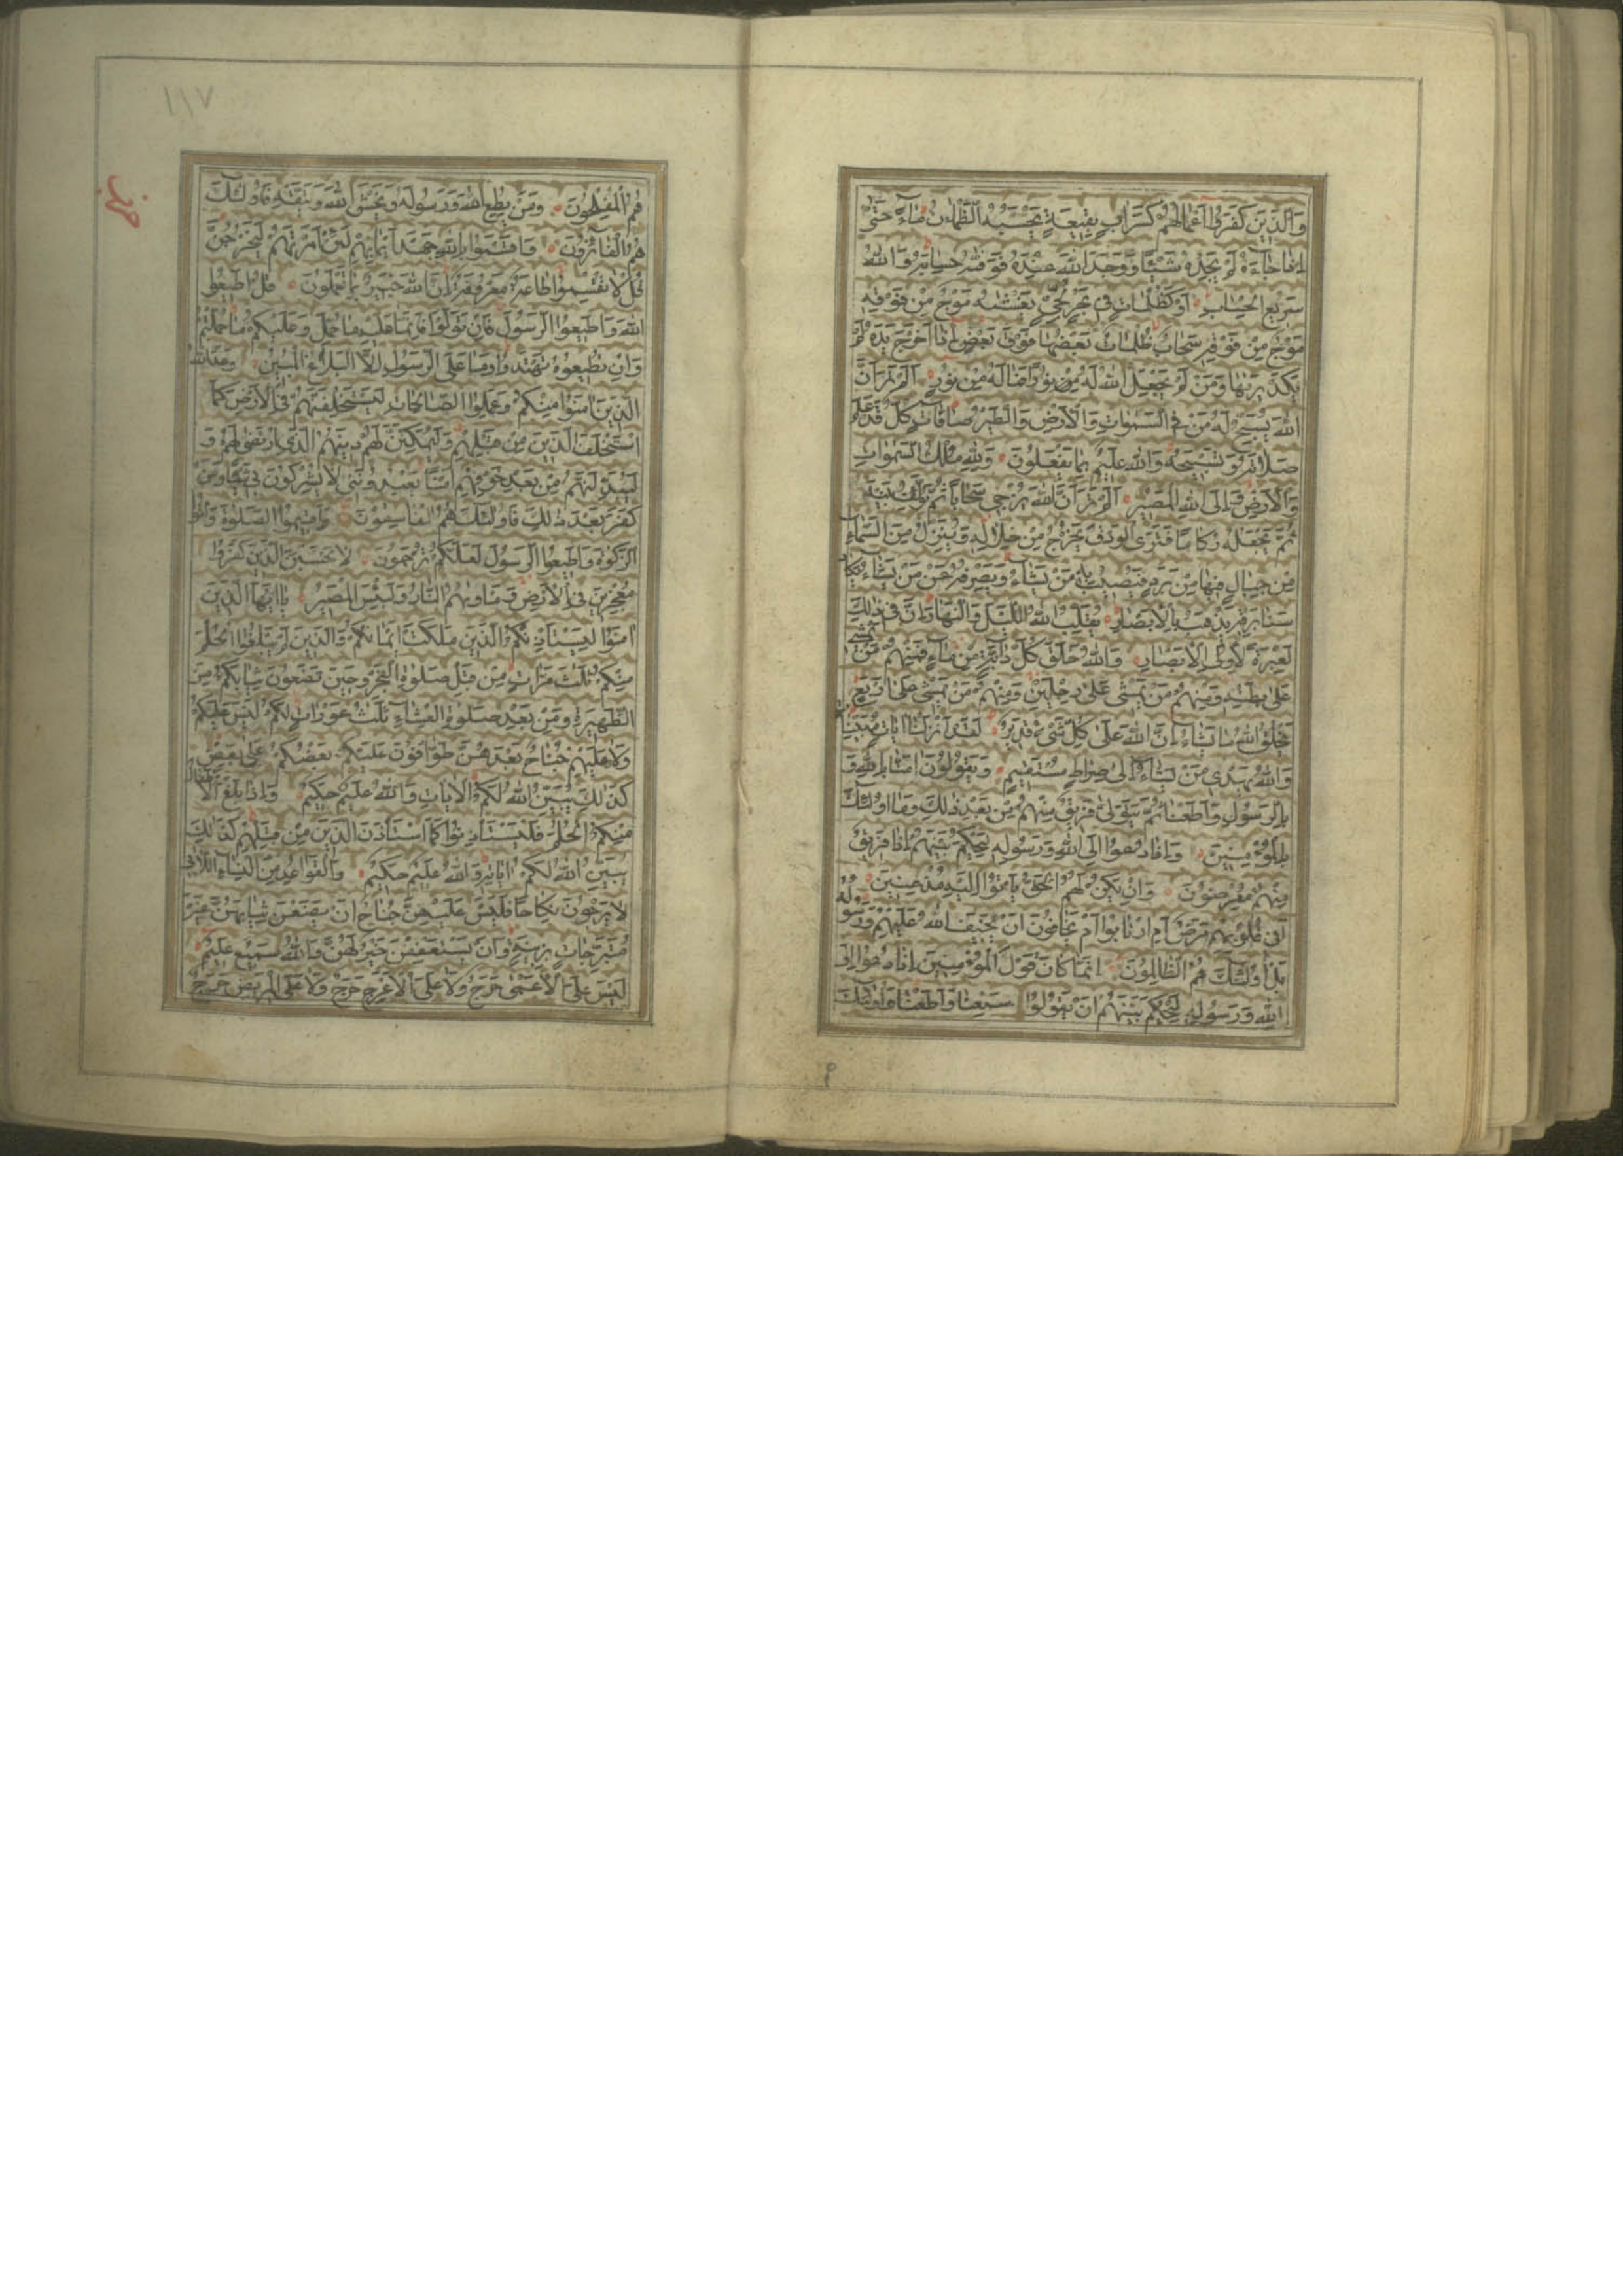 وَالَّذِينَ كَفَرُوا أَعْمَالُهُمْ كَسَرَابٍ بِقِيعَةٍ يَحْسَبُهُ الظَّمْآنُ مَاءً حَتَّىٰ
إِذَا جَاءَهُ لَمْ يَجِدْهُ شَيْئًا وَوَجَدَ اللهَ عِنْدَهُ فَوَفّٰهُ حِسَابَهُ وَاللهُ
سَرِيعُ الْحِسَابِ أَوْ كَظُلُمَاتٍ فِي بَحْرٍ لُجِّيٍّ يَغْشٰهُ مَوْجٌ مِنْ فَوْقِهِ
مَوْجٌ مِنْ فَوْقِهِ سَحَابٌ ظُلُمَاتٌ بَعْضُهَا فَوْقَ بَعْضٍ إِذَا أَخْرَجَ يَدَهُ لَمْ
يَكَدْ يَرٰهَا وَمَنْ لَمْ يَجْعَلِ اللهُ لَهُ نُورًا فَمَا لَهُ مِنْ نُورٍ أَلَمْ تَرَ أَنَّ
اللهَ يُسَبِّحُ لَهُ مَنْ فِي السَّمٰوَاتِ وَالْأَرْضِ وَالطَّيْرُ صَافَّاتٍ كُلٌّ قَدْ عَلِمَ
صَلَاتَهُ وَتَسْبِيحَهُ وَاللهُ عَلِيمٌ بِمَا يَفْعَلُونَ وَلِلّٰهِ مُلْكُ السَّمٰوَاتِ
وَالْأَرْضِ وَإِلَى اللهِ الْمَصِيرُ أَلَمْ تَرَ أَنَّ اللهَ يُزْجِي سَحَابًا ثُمَّ يُؤَلِّفُ بَيْنَهُ
ثُمَّ يَجْعَلُهُ رُكَامًا فَتَرَى الْوَدْقَ يَخْرُجُ مِنْ خِلَالِهِ وَيُنَزِّلُ مِنَ السَّمَاءِ
مِنْ جِبَالٍ فِيهَا مِنْ بَرَدٍ فَيُصِيبُ بِهِ مَنْ يَشَاءُ وَيَصْرِفُهُ عَنْ مَنْ يَشَاءُ يَكَادُ
سَنَا بَرْقِهِ يَذْهَبُ بِالْأَبْصَارِ يُقَلِّبُ اللهُ اللَّيْلَ وَالنَّهَارَ إِنَّ فِي ذٰلِكَ
لَعِبْرَةً لِأُولِي الْأَبْصَارِ وَاللهُ خَلَقَ كُلَّ دَابَّةٍ مِنْ مَاءٍ فَمِنْهُمْ مَنْ يَمْشِي
عَلَىٰ بَطْنِهِ وَمِنْهُمْ مَنْ يَمْشِي عَلَىٰ رِجْلَيْنِ وَمِنْهُمْ مَنْ يَمْشِي عَلَىٰ أَرْبَعٍ
يَخْلُقُ اللهُ مَا يَشَاءُ إِنَّ اللهَ عَلَىٰ كُلِّ شَيْءٍ قَدِيرٌ لَقَدْ أَنْزَلْنَا آيَاتٍ مُبَيِّنَاتٍ
وَاللهُ يَهْدِي مَنْ يَشَاءُ إِلَىٰ صِرَاطٍ مُسْتَقِيمٍ وَيَقُولُونَ آمَنَّا بِاللهِ وَ
بِالرَّسُولِ وَأَطَعْنَا ثُمَّ يَتَوَلَّىٰ فَرِيقٌ مِنْهُمْ مِنْ بَعْدِ ذٰلِكَ وَمَا أُولٰئِكَ
بِالْمُؤْمِنِينَ وَإِذَا دُعُوا إِلَى اللهِ وَرَسُولِهِ لِيَحْكُمَ بَيْنَهُمْ إِذَا فَرِيقٌ
مِنْهُمْ مُعْرِضُونَ وَإِنْ يَكُنْ لَهُمُ الْحَقُّ يَأْتُوا إِلَيْهِ مُذْعِنِينَ
أَفِي قُلُوبِهِمْ مَرَضٌ أَمِ ارْتَابُوا أَمْ يَخَافُونَ أَنْ يَحِيفَ اللهُ عَلَيْهِمْ وَرَسُولُهُ
بَلْ أُولٰئِكَ هُمُ الظَّالِمُونَ إِنَّمَا كَانَ قَوْلَ الْمُؤْمِنِينَ إِذَا دُعُوا إِلَى
اللهِ وَرَسُولِهِ لِيَحْكُمَ بَيْنَهُمْ أَنْ يَقُولُوا سَمِعْنَا وَأَطَعْنَا وَأُولٰئِكَ
١١٧
هُمُ الْمُفْلِحُونَ وَمَنْ يُطِعِ اللهَ وَرَسُولَهُ وَيَخْشَ اللهَ وَيَتَّقْهِ فَأُولٰئِكَ
هُمُ الْفَائِزُونَ وَأَقْسَمُوا بِاللهِ جَهْدَ أَيْمَانِهِمْ لَئِنْ أَمَرْتَهُمْ لَيَخْرُجُنَّ
قُلْ لَا تُقْسِمُوا طَاعَةٌ مَعْرُوفَةٌ إِنَّ اللهَ خَبِيرٌ بِمَا تَعْمَلُونَ قُلْ أَطِيعُوا
اللهَ وَأَطِيعُوا الرَّسُولَ فَإِنْ تَوَلَّوْا فَإِنَّمَا عَلَيْهِ مَا حُمِّلَ وَعَلَيْكُمْ مَا حُمِّلْتُمْ
وَإِنْ تُطِيعُوهُ تَهْتَدُوا وَمَا عَلَى الرَّسُولِ إِلَّا الْبَلَاغُ الْمُبِينُ وَعَدَ اللهُ
الَّذِينَ آمَنُوا مِنْكُمْ وَعَمِلُوا الصَّالِحَاتِ لَيَسْتَخْلِفَنَّهُمْ فِي الْأَرْضِ كَمَا
اسْتَخْلَفَ الَّذِينَ مِنْ قَبْلِهِمْ وَلَيُمَكِّنَنَّ لَهُمْ دِينَهُمُ الَّذِي ارْتَضَىٰ لَهُمْ وَ
لَيُبَدِّلَنَّهُمْ مِنْ بَعْدِ خَوْفِهِمْ أَمْنًا يَعْبُدُونَنِي لَا يُشْرِكُونَ بِي شَيْئًا وَمَنْ
كَفَرَ بَعْدَ ذٰلِكَ فَأُولٰئِكَ هُمُ الْفَاسِقُونَ وَأَقِيمُوا الصَّلٰوةَ وَآتُوا
الزَّكٰوةَ وَأَطِيعُوا الرَّسُولَ لَعَلَّكُمْ تُرْحَمُونَ لَا تَحْسَبَنَّ الَّذِينَ كَفَرُوا
مُعْجِزِينَ فِي الْأَرْضِ وَمَأْوٰهُمُ النَّارُ وَلَبِئْسَ الْمَصِيرُ يَا أَيُّهَا الَّذِينَ
آمَنُوا لِيَسْتَأْذِنْكُمُ الَّذِينَ مَلَكَتْ أَيْمَانُكُمْ وَالَّذِينَ لَمْ يَبْلُغُوا الْحُلُمَ
مِنْكُمْ ثَلٰثَ مَرَّاتٍ مِنْ قَبْلِ صَلٰوةِ الْفَجْرِ وَحِينَ تَضَعُونَ ثِيَابَكُمْ مِنَ
الظَّهِيرَةِ وَمِنْ بَعْدِ صَلٰوةِ الْعِشَاءِ ثَلٰثُ عَوْرَاتٍ لَكُمْ لَيْسَ عَلَيْكُمْ
وَلَا عَلَيْهِمْ جُنَاحٌ بَعْدَهُنَّ طَوَّافُونَ عَلَيْكُمْ بَعْضُكُمْ عَلَىٰ بَعْضٍ
كَذٰلِكَ يُبَيِّنُ اللهُ لَكُمُ الْآيَاتِ وَاللهُ عَلِيمٌ حَكِيمٌ وَإِذَا بَلَغَ الْأَطْفَالُ
مِنْكُمُ الْحُلُمَ فَلْيَسْتَأْذِنُوا كَمَا اسْتَأْذَنَ الَّذِينَ مِنْ قَبْلِهِمْ كَذٰلِكَ
يُبَيِّنُ اللهُ لَكُمْ آيَاتِهِ وَاللهُ عَلِيمٌ حَكِيمٌ وَالْقَوَاعِدُ مِنَ النِّسَاءِ اللَّاتِي
لَا يَرْجُونَ نِكَاحًا فَلَيْسَ عَلَيْهِنَّ جُنَاحٌ أَنْ يَضَعْنَ ثِيَابَهُنَّ غَيْرَ
مُتَبَرِّجَاتٍ بِزِينَةٍ وَأَنْ يَسْتَعْفِفْنَ خَيْرٌ لَهُنَّ وَاللهُ سَمِيعٌ عَلِيمٌ
لَيْسَ عَلَى الْأَعْمَىٰ حَرَجٌ وَلَا عَلَى الْأَعْرَجِ حَرَجٌ وَلَا عَلَى الْمَرِيضِ حَرَجٌ